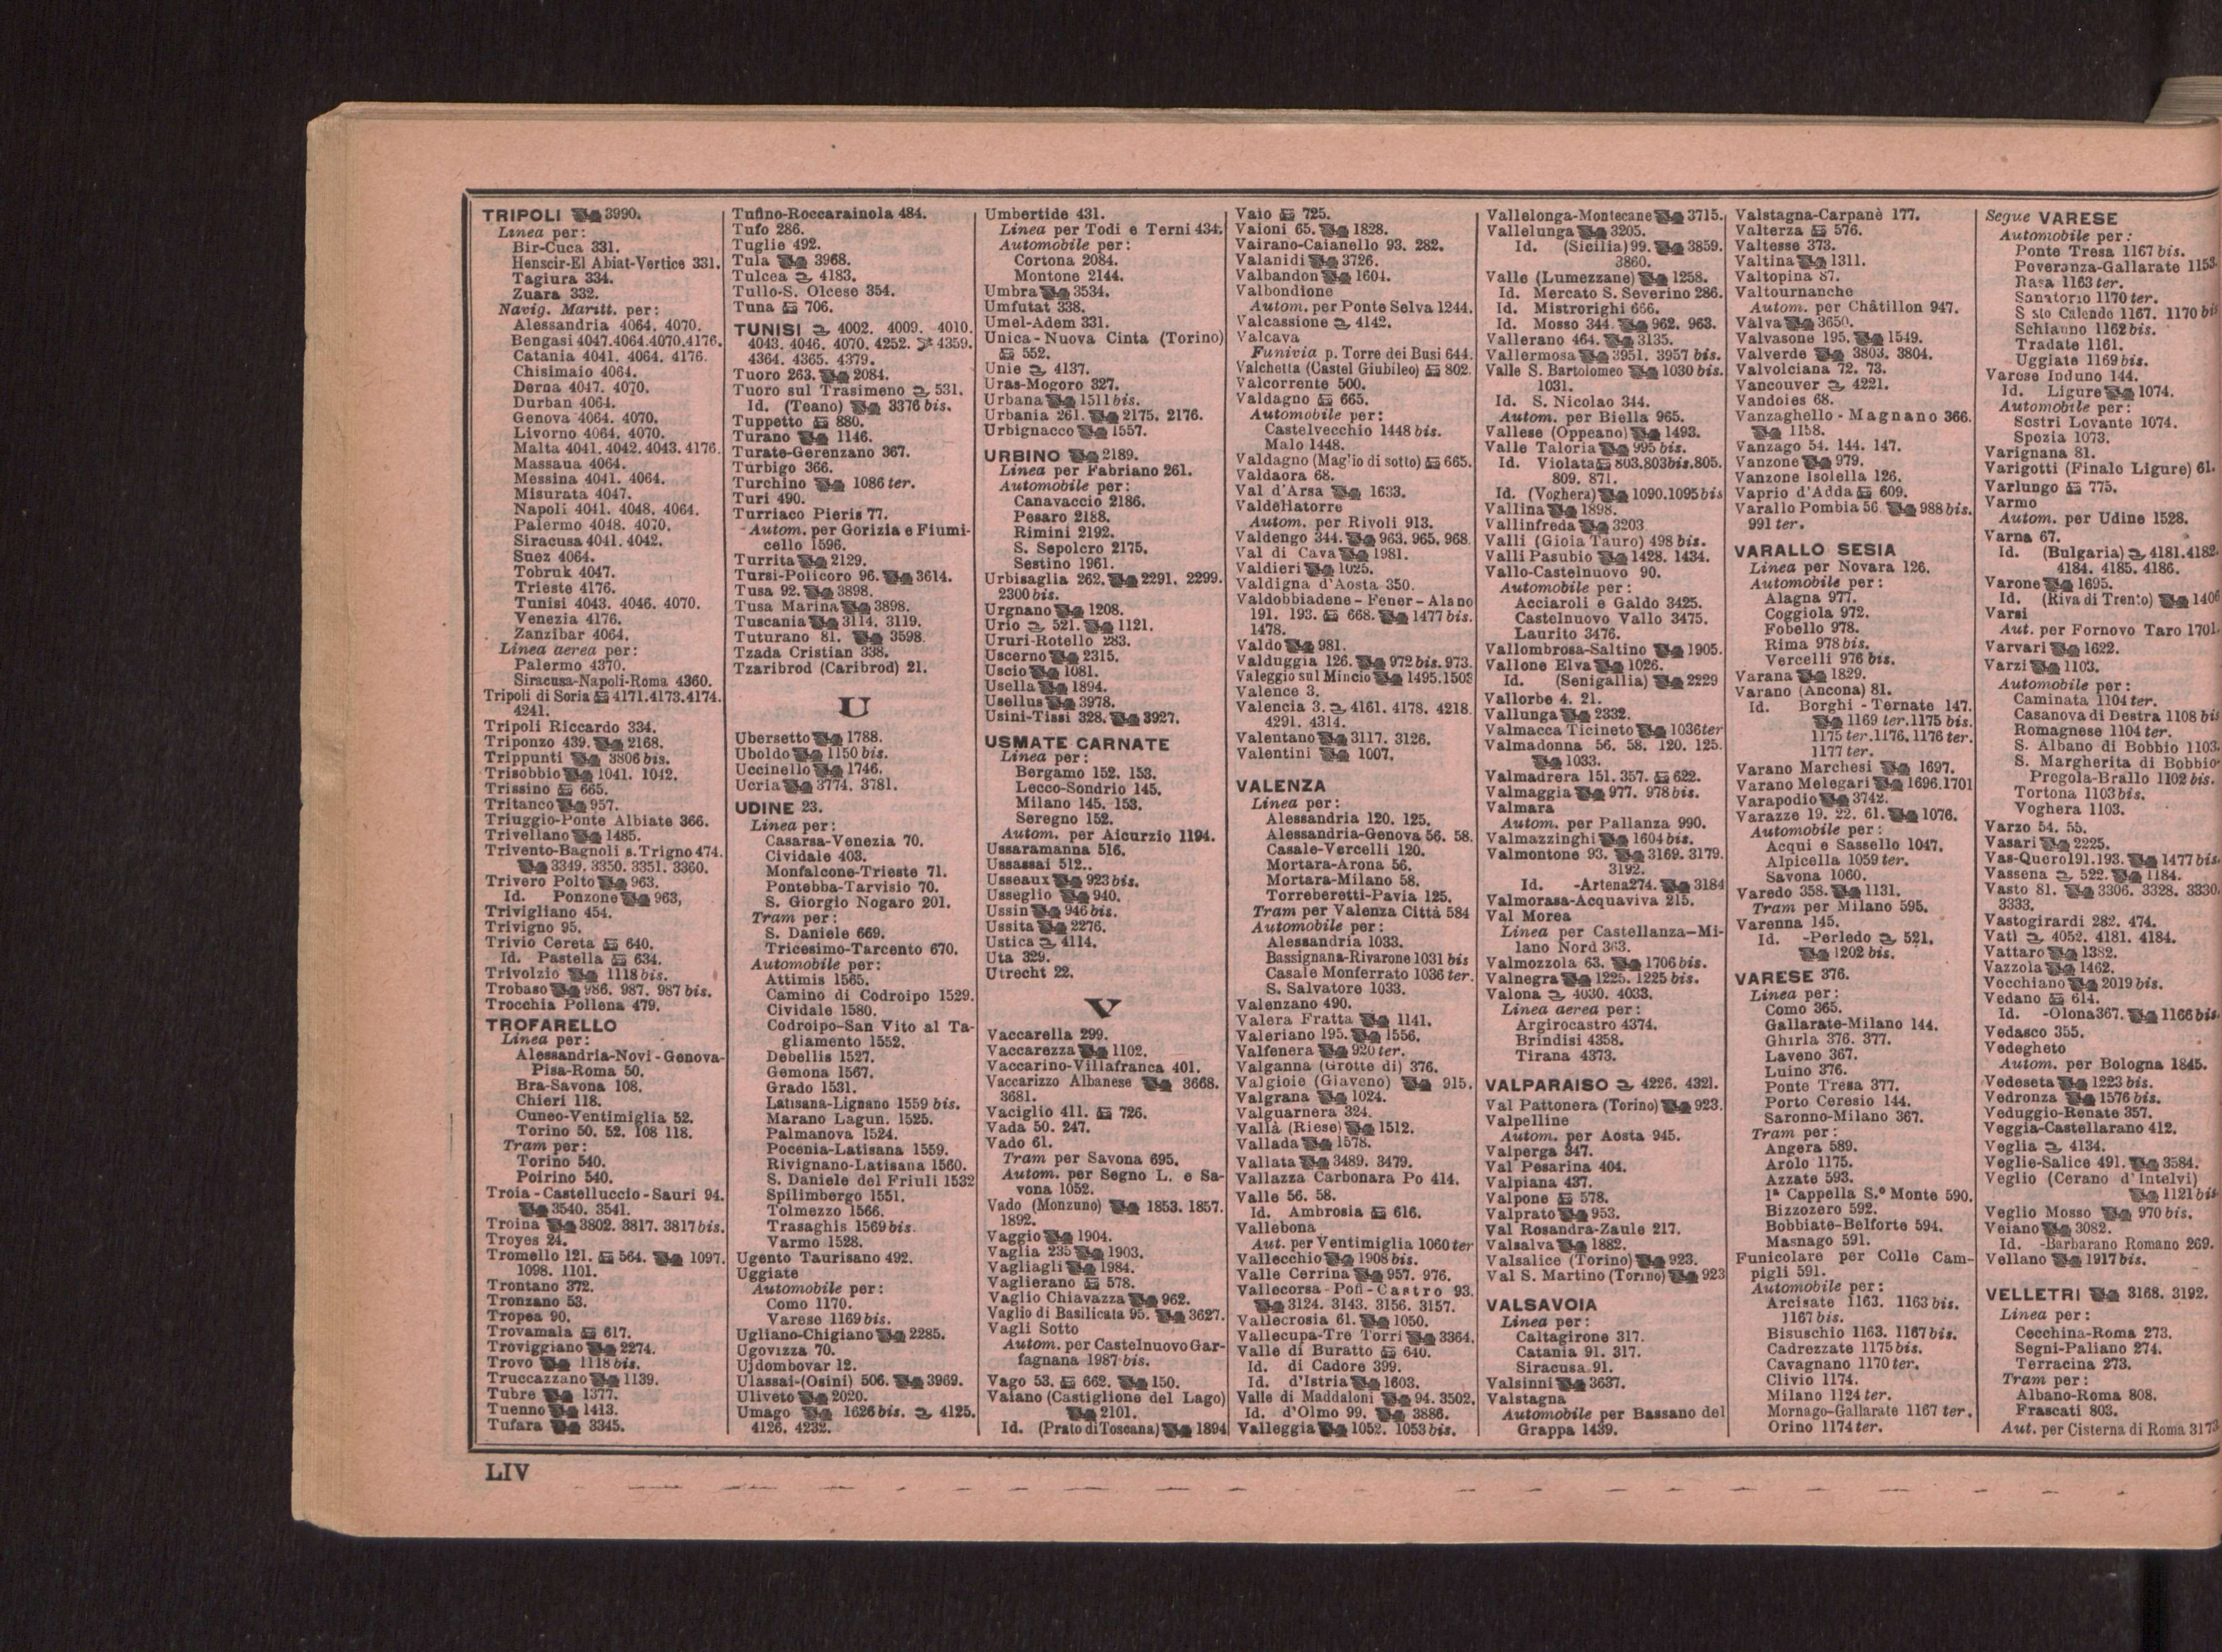 TRIPOLI 3990.
Linea per:
Bir-Cuca 331.
Henscir-El Abiat-Vertice 331.
Tagiura 334.
Zuara 332.
Navig. Maritt. per:
Alessandria 4064. 4070.
Bengasi 4047.4064.4070.4176.
Catania 4041. 4064. 4176.
Chisimaio 4064.
Derna 4047. 4070.
Durban 4064.
Genova 4064. 4070.
Livorno 4064. 4070.
Malta 4041. 4042. 4043. 4176.
Massaua 4064.
Messina 4041. 4064.
Misurata 4047.
Napoli 4041. 4048. 4064.
Palermo 4048. 4070.
Siracusa 4041. 4042.
Suez 4064.
Tobruk 4047.
Trieste 4176.
Tunisi 4043. 4046. 4070.
Venezia 4176.
Zanzibar 4064.
Linea aerea per:
Palermo 4370.
Siracusa-Napoli-Roma 4360.
Tripoli di Soria 4171.4173.4174.
4241.
Tripoli Riccardo 334.
Triponzo 439. 2168.
Trippunti 3806 bis.
Trisobbio 1041. 1042.
Trissino 665.
Tritanco 957.
Triuggio-Ponte Albiate 366.
Trivellano 1485.
Trivento-Bagnoli s.Trigno 474.
3349. 3350. 3351. 3360.
Trivero Polto 963.
Id. Ponzone 963,
Trivigliano 454.
Trivigno 95.
Trivio Cereta 640.
Id. Pastella 634.
Trivolzio 1118 bis.
Trobaso 986. 987. 987 bis.
Trocchia Pollena 479.
TROFARELLO
Linea per:
Alessandria-Novi-Genova-
Pisa-Roma 50.
Bra-Savona 108.
Chieri 118.
Cuneo-Ventimiglia 52.
Torino 50. 52. 108 118.
Tram per:
Torino 540.
Poirino 540.
Troia-Castelluccio-Sauri 94.
3540. 3541.
Troina 3802. 3817. 3817 bis.
Troyes 24.
Tromello 121. 564. 1097.
1098. 1101.
Trontano 372.
Tronzano 53.
Tropea 90.
Trovamala 617.
Troviggiano 2274.
Trovo 1118 bis.
Truccazzano 1139.
Tubre 1377.
Tuenno 1413.
Tufara 3345.
Tufino-Roccarainola 484.
Tufo 286.
Tuglie 492.
Tula 3968.
Tulcea 4183.
Tullo-S. Olcese 354.
Tuna 706.
TUNISI 4002. 4009. 4010.
4043. 4046. 4070. 4252. 4359.
4364. 4365. 4379.
Tuoro 263. 2084.
Tuoro sul Trasimeno 531.
Id. (Teano) 3376 bis.
Tuppetto 880.
Turano 1146.
Turate-Gerenzano 367.
Turbigo 366.
Turchino 1086 ter.
Turi 490.
Turriaco Pieris 77.
Autom. per Gorizia e Fiumi-
cello 1596.
Turrita 2129.
Tursi-Policoro 96. 3614.
Tusa 92. 3898.
Tusa Marina 3898.
Tuscania 3114. 3119.
Tuturano 81. 3598.
Tzada Cristian 338.
Tzaribrod (Caribrod) 21.
U
Ubersetto 1788.
Uboldo 1150 bis.
Uccinello 1746.
Ucria 3774. 3781.
UDINE 23.
Linea per:
Casarsa-Venezia 70.
Cividale 403.
Monfalcone-Trieste 71.
Pontebba-Tarvisio 70.
S. Giorgio Nogaro 201.
Tram per:
S. Daniele 669.
Tricesimo-Tarcento 670.
Automobile per:
Attimis 1565.
Camino di Codroipo 1529.
Cividale 1580.
Codroipo-San Vito al Ta-
gliamento 1552.
Debellis 1527.
Gemona 1567.
Grado 1531.
Latisana-Lignano 1559 bis.
Marano Lagun. 1525.
Palmanova 1524.
Pocenia-Latisana 1559.
Rivignano-Latisana 1560.
S. Daniele del Friuli 1532
Spilimbergo 1551.
Tolmezzo 1566.
Trasaghis 1569 bis.
Varmo 1528.
Ugento Taurisano 492.
Uggiate
Automobile per:
Como 1170.
Varese 1169 bis.
Ugliano-Chigiano 2285.
Ugovizza 70.
Ujdombovar 12.
Ulassai-(Osini) 506. 3969.
Uliveto 2020.
Umago 1626 bis. 4125.
4126. 4232.
Umbertide 431.
Linea per Todi e Terni 434.
Automobile per:
Cortona 2084.
Montone 2144.
Umbra 3534.
Umfutat 338.
Umel-Adem 331.
Unica-Nuova Cinta (Torino)
552.
Unie 4137.
Uras-Mogoro 327.
Urbana 1511 bis.
Urbania 261. 2175. 2176.
Urbignacco 1557.
URBINO 2189.
Linea per Fabriano 261.
Automobile per:
Canavaccio 2186.
Pesaro 2188.
Rimini 2192.
S. Sepolcro 2175.
Sestino 1961.
Urbisaglia 262. 2291. 2299.
2300 bis.
Urgnano 1208.
Urio 521. 1121.
Ururi-Rotello 283.
Uscerno 2315.
Uscio 1081.
Usella 1894.
Usellus 3978.
Usini-Tissi 328. 3927.
USMATE CARNATE
Linea per:
Bergamo 152. 153.
Lecco-Sondrio 145.
Milano 145. 153.
Seregno 152.
Autom. per Aicurzio 1194.
Ussaramanna 516.
Ussassai 512..
Usseaux 923 bis.
Usseglio 940.
Ussin 946 bis.
Ussita 2276.
Ustica 4114.
Uta 329.
Utrecht 22.
V
Vaccarella 299.
Vaccarezza 1102.
Vaccarino-Villafranca 401.
Vaccarizzo Albanese 3668.
3681.
Vaciglio 411. 726.
Vada 50. 247.
Vado 61.
Tram per Savona 695.
Autom. per Segno L. e Sa-
vona 1052.
Vado (Monzuno) 1853. 1857.
1892.
Vaggio 1904.
Vaglia 235 1903.
Vagliagli 1984.
Vaglierano 578.
Vaglio Chiavazza 962.
Vaglio di Basilicata 95. 3627.
Vagli Sotto
Autom. per Castelnuovo Gar-
fagnana 1987 bis.
Vago 53. 662. 150.
Vaiano (Castiglione del Lago)
2101.
Id. (Prato di Toscana) 1894
Vaio 725.
Vaioni 65. 1828.
Vairano-Caianello 93. 282.
Valanidi 3726.
Valbandon 1604.
Valbondione
Autom. per Ponte Selva 1244.
Valcassione 4142.
Valcava
Funivia p. Torre dei Busi 644.
Valchetta (Castel Giubileo) 802.
Valcorrente 500.
Valdagno 665.
Automobile per:
Castelvecchio 1448 bis.
Malo 1448.
Valdagno (Mag'io di sotto) 665.
Valdaora 68.
Val d'Arsa 1633.
Valdellatorre
Autom. per Rivoli 913.
Valdengo 344. 963. 965. 968.
Val di Cava 1981.
Valdieri 1025.
Valdigna d'Aosta 350.
Valdobbiadene-Fener-Alano
191. 193. 668. 1477 bis.
1478.
Valdo 981.
Valduggia 126. 972 bis. 973.
Valeggio sul Mincio 1495.1503
Valence 3.
Valencia 3. 4161. 4178. 4218.
4291. 4314.
Valentano 3117. 3126.
Valentini 1007.
VALENZA
Linea per:
Alessandria 120. 125.
Alessandria-Genova 56. 58.
Casale-Vercelli 120.
Mortara-Arona 56.
Mortara-Milano 58.
Torreberetti-Pavia 125.
Tram per Valenza Città 584
Automobile per:
Alessandria 1033.
Bassignana-Rivarone 1031 bis
Casale Monferrato 1036 ter.
S. Salvatore 1033.
Valenzano 490.
Valera Fratta 1141.
Valeriano 195. 1556.
Valfenera 920 ter.
Valganna (Grotte di) 376.
Valgioie (Giaveno) 915.
Valgrana 1024.
Valguarnera 324.
Vallà (Riese) 1512.
Vallada 1578.
Vallata 3489. 3479.
Vallazza Carbonara Po 414.
Valle 56. 58.
Id. Ambrosia 616.
Vallebona
Aut. per Ventimiglia 1060 ter
Vallecchio 1908 bis.
Valle Cerrina 957. 976.
Vallecorsa-Pofi-Castro 93.
3124. 3143. 3156. 3157.
Vallecrosia 61. 1050.
Vallecupa-Tre Torri 3364.
Valle di Buratto 640.
Id. di Cadore 399.
Id. d'Istria 1603.
Valle di Maddaloni 94. 3502.
Id. d'Olmo 99. 3886.
Valleggia 1052. 1053 bis.
Vallelonga-Montecane 3715.
Vallelunga 3205.
Id. (Sicilia) 99. 3859.
3860.
Valle (Lumezzane) 1258.
Id. Mercato S. Severino 286.
Id. Mistrorighi 666.
Id. Mosso 344. 962. 963.
Vallerano 464. 3135.
Vallermosa 3951. 3957 bis.
Valle S. Bartolomeo 1030 bis.
1031.
Id. S. Nicolao 344.
Autom. per Biella 965.
Vallese (Oppeano) 1493.
Valle Taloria 995 bis.
Id. Violata 803.803bis.805.
809. 871.
Id. (Voghera) 1090.1095 bis
Vallina 1898.
Vallinfreda 3203
Valli (Gioia Tauro) 498 bis.
Valli Pasubio 1428. 1434.
Vallo-Castelnuovo 90.
Automobile per:
Acciaroli e Galdo 3425.
Castelnuovo Vallo 3475.
Laurito 3476.
Vallombrosa-Saltino 1905.
Vallone Elva 1026.
Id. (Senigallia) 2229
Vallorbe 4. 21.
Vallunga 2332.
Valmacca Ticineto 1036ter
Valmadonna 56. 58. 120. 125.
1033.
Valmadrera 151. 357. 622.
Valmaggia 977. 978 bis.
Valmara
Autom. per Pallanza 990.
Valmazzinghi 1604 bis.
Valmontone 93. 3169. 3179.
3192.
Id. -Artena 274. 3184
Valmorasa-Acquaviva 215.
Val Morea
Linea per Castellanza-Mi-
lano Nord 363.
Valmozzola 63. 1706 bis.
Valnegra 1225. 1225 bis.
Valona 4030. 4033.
Linea aerea per:
Argirocastro 4374.
Brindisi 4358.
Tirana 4373.
VALPARAISO 4226. 4321.
Val Pattonera (Torino) 923.
Valpelline
Autom. per Aosta 945.
Valperga 347.
Val Pesarina 404.
Valpiana 437.
Valpone 578.
Valprato 953.
Val Rosandra-Zaule 217.
Valsalva 1882.
Valsalice (Torino) 923.
Val S. Martino (Torino) 923
VALSAVOIA
Linea per:
Caltagirone 317.
Catania 91. 317.
Siracusa 91.
Valsinni 3637.
Valstagna
Automobile per Bassano del
Grappa 1439.
Valstagna-Carpanè 177.
Valterza 576.
Valtesse 373.
Valtina 1311.
Valtopina 87.
Valtournanche
Autom. per Châtillon 947.
Valva 3650.
Valvasone 195. 1549.
Valverde 3803. 3804.
Valvolciana 72. 73.
Vancouver 4221.
Vandoies 68.
Vanzaghello-Magnano 366.
1158.
Vanzago 54. 144. 147.
Vanzone 979.
Vanzone Isolella 126.
Vaprio d'Adda 609.
Varallo Pombia 56. 988 bis.
991 ter.
VARALLO SESIA
Linea per Novara 126.
Automobile per:
Alagna 977.
Coggiola 972.
Fobello 978.
Rima 978 bis.
Vercelli 976 bis.
Varana 1829.
Varano (Ancona) 81.
Id. Borghi-Ternate 147.
1169 ter.1175 bis.
1175 ter.1176. 1176 ter.
1177 ter.
Varano Marchesi 1697.
Varano Melegari 1696.1701
Varapodio 3742.
Varazze 19. 22. 61. 1076.
Automobile per:
Acqui e Sassello 1047.
Alpicella 1059 ter.
Savona 1060.
Varedo 358. 1131.
Tram per Milano 595.
Varenna 145.
Id. -Perledo 521.
1202 bis.
VARESE 376.
Linea per:
Como 365.
Gallarate-Milano 144.
Ghirla 376. 377.
Laveno 367.
Luino 376.
Ponte Tresa 377.
Porto Ceresio 144.
Saronno-Milano 367.
Tram per:
Angera 589.
Arolo 1175.
Azzate 593.
1ª Cappella S.º Monte 590.
Bizzozero 592.
Bobbiate-Belforte 594.
Masnago 591.
Funicolare per Colle Cam-
pigli 591.
Automobile per:
Arcisate 1163. 1163 bis.
1167 bis.
Bisuschio 1163. 1167 bis.
Cadrezzate 1175 bis.
Cavagnano 1170 ter.
Clivio 1174.
Milano 1124 ter.
Mornago-Gallarate 1167 ter.
Orino 1174 ter.
Segue VARESE
Automobile per:
Ponte Tresa 1167 bis.
Poveranza-Gallarate 1153
Rasa 1163 ter.
Sanatorio 1170 ter.
S sto Calende 1167. 1170 bis
Schianno 1162 bis.
Tradate 1161.
Uggiate 1169 bis.
Varese Induno 144.
Id. Ligure 1074.
Automobile per:
Sestri Levante 1074.
Spezia 1073.
Varignana 81.
Varigotti (Finale Ligure) 61.
Varlungo 775.
Varmo
Autom. per Udine 1528.
Varna 67.
Id. (Bulgaria) 4181.4182
4184. 4185. 4186.
Varone 1695.
Id. (Riva di Trento) 1406
Varsi
Aut. per Fornovo Taro 1701.
Varvari 1622.
Varzi 1103.
Automobile per:
Caminata 1104 ter.
Casanova di Destra 1108 bis
Romagnese 1104 ter.
S. Albano di Bobbio 1103.
S. Margherita di Bobbio-
Pregola-Brallo 1102 bis.
Tortona 1103 bis.
Voghera 1103.
Varzo 54. 55.
Vasari 2225.
Vas-Quero191.193. 1477 bis
Vassena 522. 1184.
Vasto 81. 3306. 3328. 3330.
3333.
Vastogirardi 282. 474.
Vati 4052. 4181. 4184.
Vattaro 1382.
Vazzola 1462.
Vecchiano 2019 bis.
Vedano 614.
Id. -Olona367. 1166 bis.
Vedasco 355.
Vedegheto
Autom. per Bologna 1845.
Vedeseta 1223 bis.
Vedronza 1576 bis.
Veduggio-Renate 357.
Veggia-Castellarano 412.
Veglia 4134.
Veglie-Salice 491. 3584.
Veglio (Cerano d'Intelvi)
1121 bis
Veglio Mosso 970 bis.
Veiano 3082.
Id. -Barbarano Romano 269.
Vellano 1917 bis.
VELLETRI 3168. 3192.
Linea per:
Cecchina-Roma 273.
Segni-Paliano 274.
Terracina 273.
Tram per:
Albano-Roma 808.
Frascati 803.
Aut. per Cisterna di Roma 3173
LIV